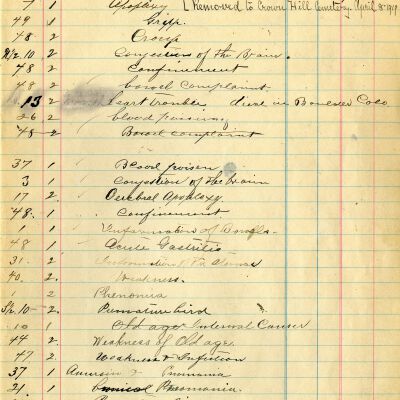 7 1 Apoplexy [Removed to Crown Hill Cemetery. April 8-1919
49 1 Gripp.
48 2 Croup
N/2.10 2 Conjestion of the Brain.
48 2 Confinement
48 2 bowel complaint
13 2 heart trouble died in Boulder Colo
26 2 blood poisoning
48 2 Bowel complaint
37 1 Blood poisen
3 1 Conjestion of the brain
17 2 Cerebral Apoplaxy
48. 1 Confinement
1 1 Imformation of Bowels.
48 1 Acute Gastritis
31. 2 of the
40. 2 Weakness.
1 2 Phenonia
S/2.10 2. Premature bird
10 1 Old age Internal Cancer
44 2 Weakness of Old age.
47 2 Weakness & Infection
37 1 & Pnumonia
21. 1 Pneomonia.